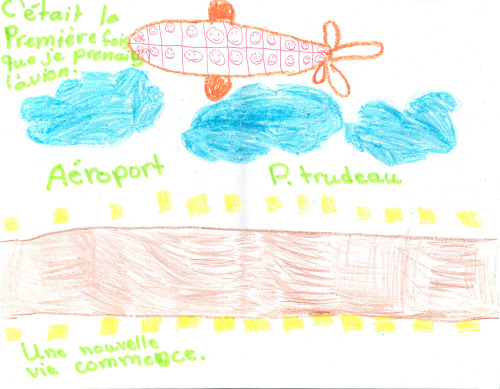 C'était la
Première fois
que je prenais
l'avion.
Aéroport P. trudeau
Une nouvelle
vie commence.